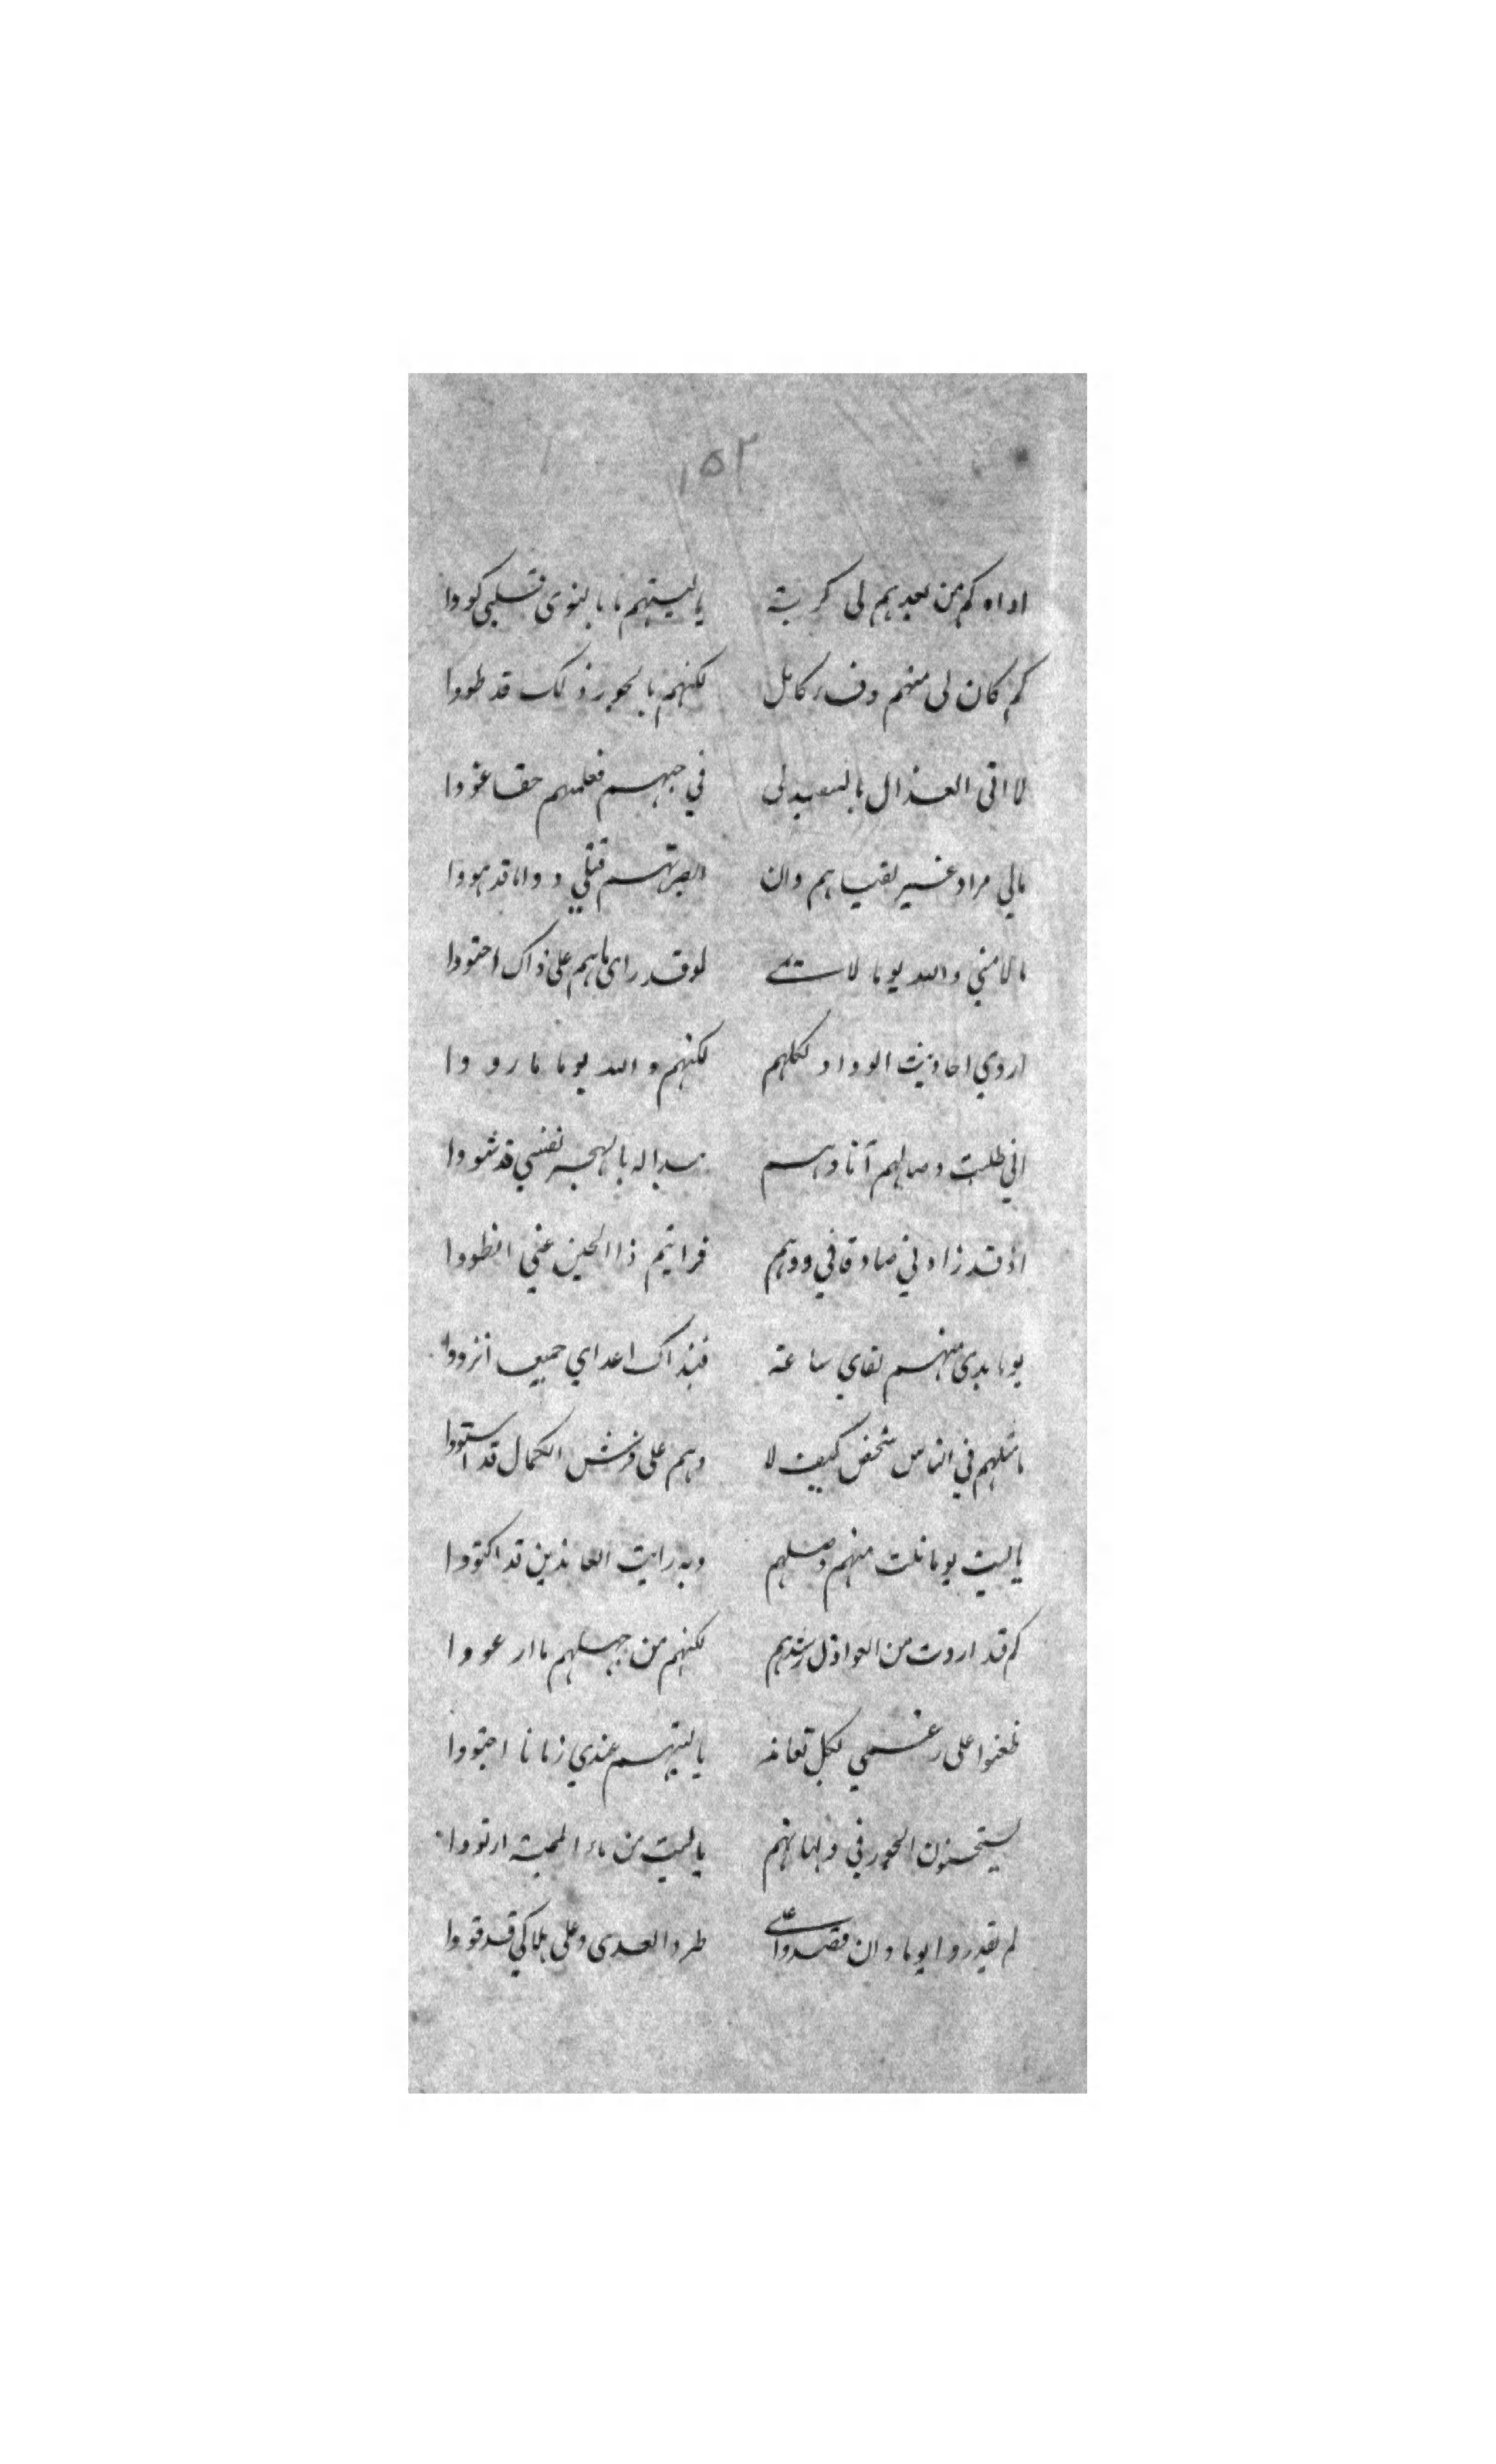 ١٥٢
اواه كم من بعدهم لى كربة ياليتهم ما بالنوى قلبي كووا
كم كان لى منهم وفاء كامل لكنهم بالجور ذلك قد طووا
لا اتى العذال بالتفنيد لى في حبهم فعلمتهم حقا غووا
مالي مراد غير لقياهم وان ابصرتهم قتلي دواما قد هووا
ما لامني والله يوما لائمى لو قد راى ما بهم على ذاك احتووا
اروي احاديث الوداد لكلهم لكنهم والله يوما ما رووا
اني طلبت وصالهم آنا وهم بالهجر نفسي قد شووا
اذ قد زادني صادقا في ودهم فراتيم ذا الحين عني انطووا
يوما بدى منهم لقاي ساعة فبذاك اعداي جميعا انزووا
ما مثلهم في الناس شخص كيف لا وهم على فرش الكمال قد استووا
ياليت يوما نلت منهم وصلهم وبه رايت العاذلين قد اكتووا
كم قد اردت من العواذل رشدهم لكنهم من جهلهم ما ارعووا
ظعنوا على رغمي لكل تعانه ياليتهم عندي زمانا احتووا
يستحسنون الجور في ياليت من ماء المحبة ارتووا
لم يقدروا يوما وان قصدوا على طرد العدى وعلى هلاكي قد قووا